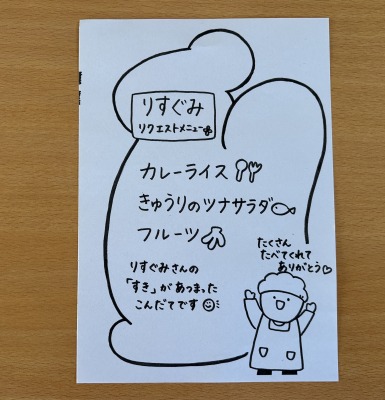 りすぐみ
リクエストメニュー
カレーライス
きゅうりのツナサラダ
フルーツ
たくさん
たべてくれて
ありがとう♡
りすぐみさんの
「すき」があつまった
こんだてです